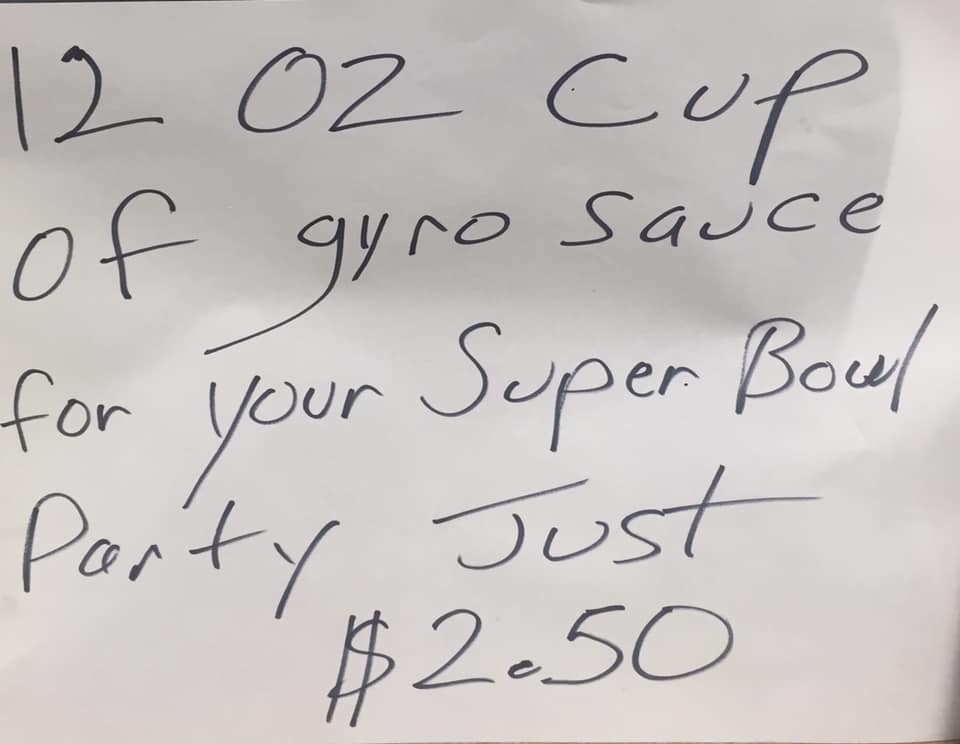 12 OZ Cup
of gyro sauce
for your Super Bowl
Party Just
$2.50